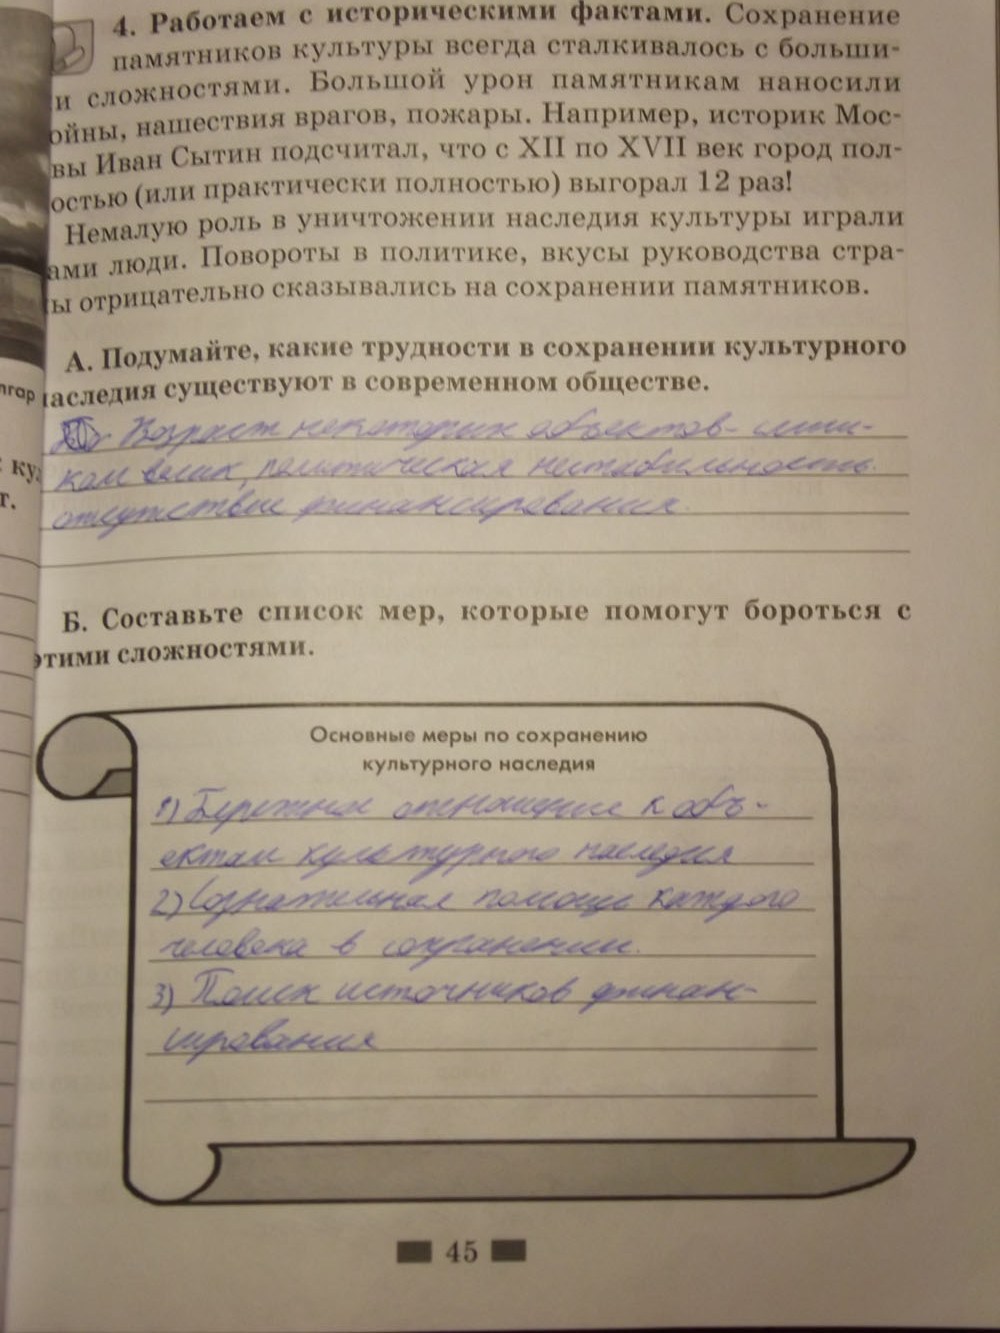 4. Работаем с историческими фактами. Сохранение
памятников культуры всегда сталкивалось с больши-
и сложностями. Большой урон памятникам наносили
ойны, нашествия врагов, пожары. Например, историк Мос-
вы Иван Сытин подсчитал, что с XII по XVII век город пол-
остью (или практически полностью) выгорал 12 раз!
Немалую роль в уничтожении наследия культуры играли
ами люди. Повороты в политике, вкусы руководства стра-
ы отрицательно сказывались на сохранении памятников.
А. Подумайте, какие трудности в сохранении культурного
лгар
наследия существуют в современном обществе.
Возраст некоторых объектов - слиш-
ком велик, политическая нестабильность.
отсутствие финансирования.
ку
т.
Б. Составьте список мер, которые помогут бороться с
этими сложностями.
Основные меры по сохранению
культурного наследия
1) Бережное отношение к объ-
ектам культурного наследия
2) Сознательная помощь каждого
человека в сохранении.
3) Поиск источников финан-
сирования
45